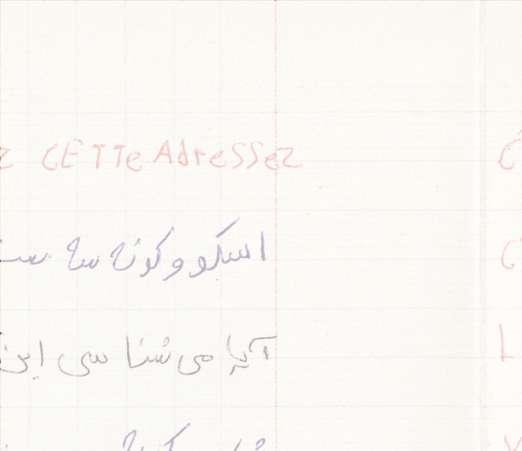 CETTe AdreSSez
اسکو و کونه سه ست
آیا می شنا سی این